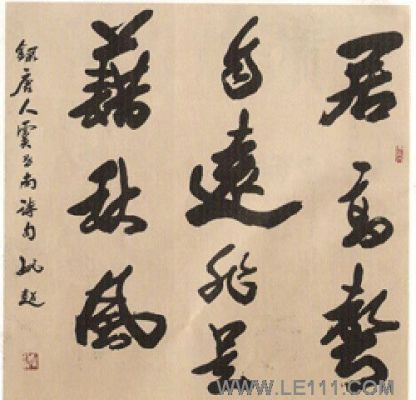 居高聲
自遠非是
藉秋風
錄唐人虞世南詩句
WWW.LE111.COM